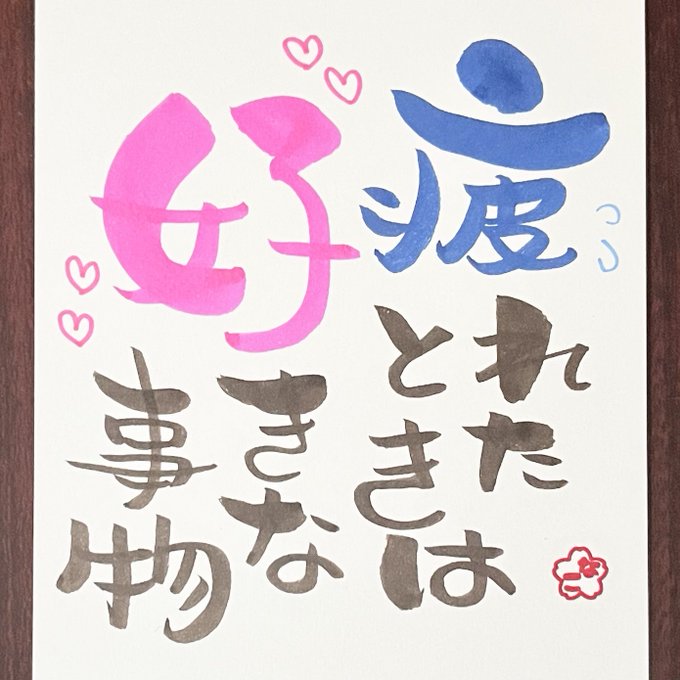 疲れた
ときは
好きな
事物
なこ